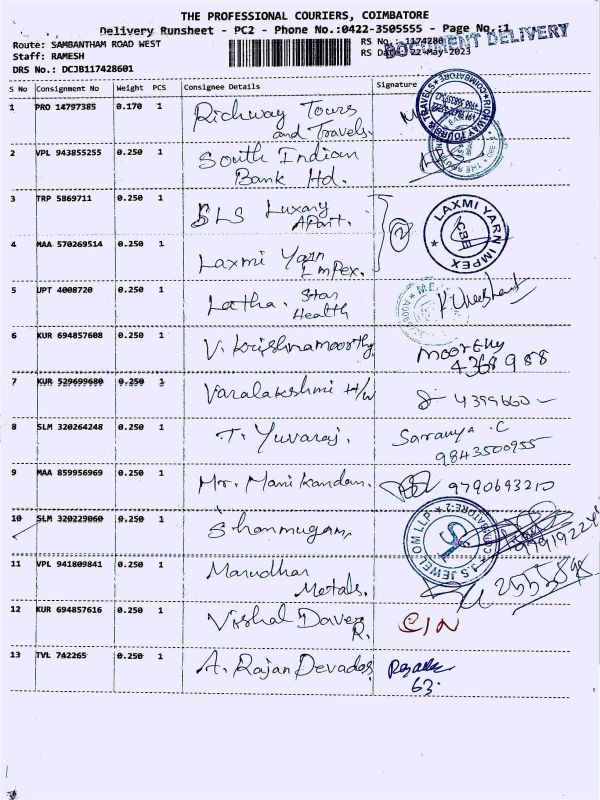 THE PROFESSIONAL COURIERS, COIMBATORE
Delivery Runsheet - PC2 - Phone No.:0422-3505555 - Page No.:1
Route: SAMBANTHAM ROAD WEST
RS No.: 1174286
DOCUMENT DELIVERY
Staff: RAMESH
RS Date: 22-May-2023
DRS No.: DCJB117428601
S No Consignment No Weight PCS Consignee Details Signature
1 PRO 14797385 0.170 1 Richway Tours
and Travels
RICHWAY TOURS & TRAVELS COIMBATORE
2 VPL 943855255 0.250 1 South Indian
Bank Ltd.
3 TRP 5869711 0.250 1 SLS Luxary
Apart.
2
4 MAA 570269514 0.250 1 Laxmi Yarn
Impex.
LAXMI YARN IMPEX
CBE
5 UPT 4008720 0.250 1 Latha. Star
Health
6 KUR 694857608 0.250 1 V. Krishnamoorthy
Moorthy
4368988
7 KUR 529699680 0.250 1 Varalakshmi H/W
4399660
8 SLM 320264248 0.250 1 T. Yuvaraj.
Saranya .C
9843500955
9 MAA 859956969 0.250 1 Mr. Manikandan.
9790693210
10 SLM 320229060 0.250 1 Shanmugam
J.S. JEWEL OM LLP COIMBATORE-2
11 VPL 941809841 0.250 1 Marudhar
Metals.
12 KUR 694857616 0.250 1 Vishal Davey
R.
C/N
13 TVL 742265 0.250 1 A. Rajan Devados
63.